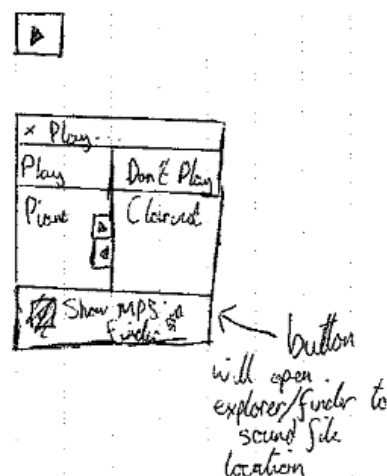 × Play.
Play Don't Play
Piano Clarinet
Show MP3 in
finder
button
will open
explorer/finder to
sound file
location